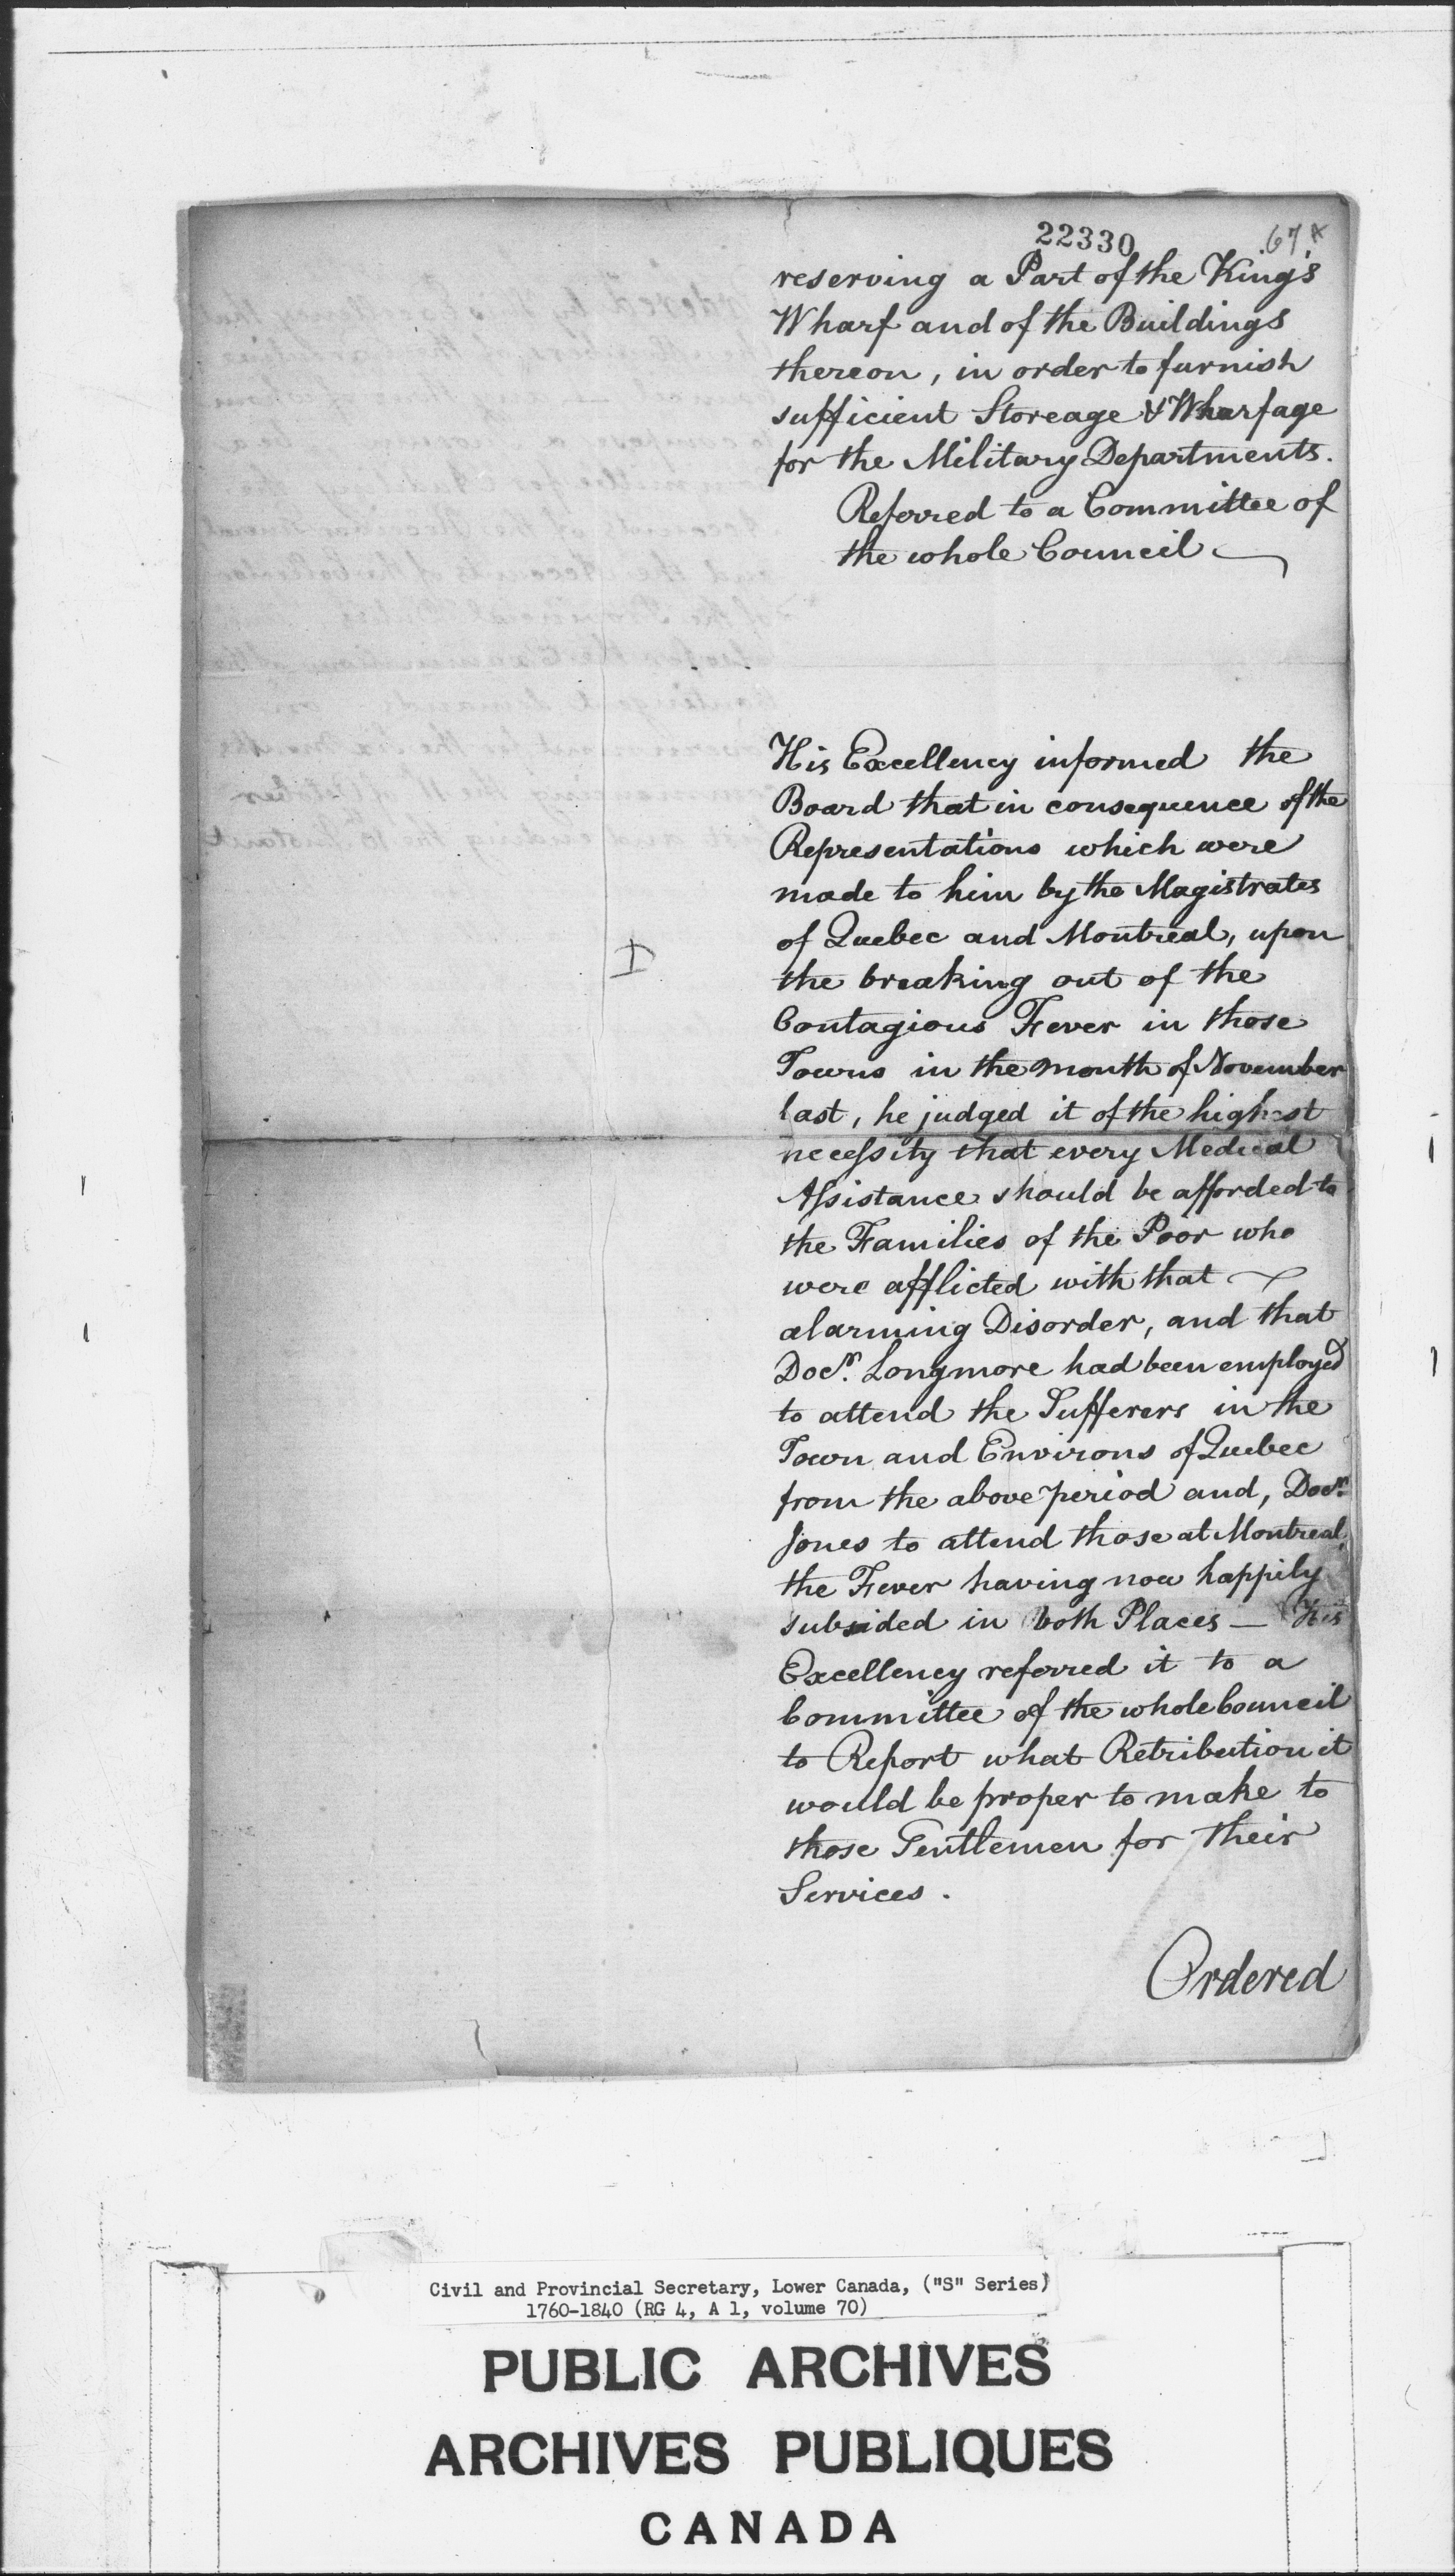 22330
67
reserving a Part of the King's
Wharf and of the Buildings
thereon, in order to furnish
sufficient Storeage & Wharfage
for the Military Departments.
Referred to a Committee of
the whole Council
His Excellency informed the
Board that in consequence of the
Representations which were
made to him by the Magistrates
of Quebec and Montreal, upon
the breaking out of the
Contagious Fever in those
Towns in the month of November
last, he judged it of the highest
necessity that every Medical
Assistance should be afforded to
the Families of the Poor who
were afflicted with that
alarming Disorder, and that
Docr. Longmore had been employed
to attend the Sufferers in the
Town and Environs of Quebec
from the above period and, Docr.
Jones to attend those at Montreal,
the Fever having now happily
subsided in both Places — His
Excellency referred it to a
Committee of the whole Council
to Report what Retribution it
would be proper to make to
those Gentlemen for their
Services.
Ordered
Civil and Provincial Secretary, Lower Canada, ("S" Series)
1760-1840 (RG 4, A 1, volume 70)
PUBLIC ARCHIVES
ARCHIVES PUBLIQUES
CANADA